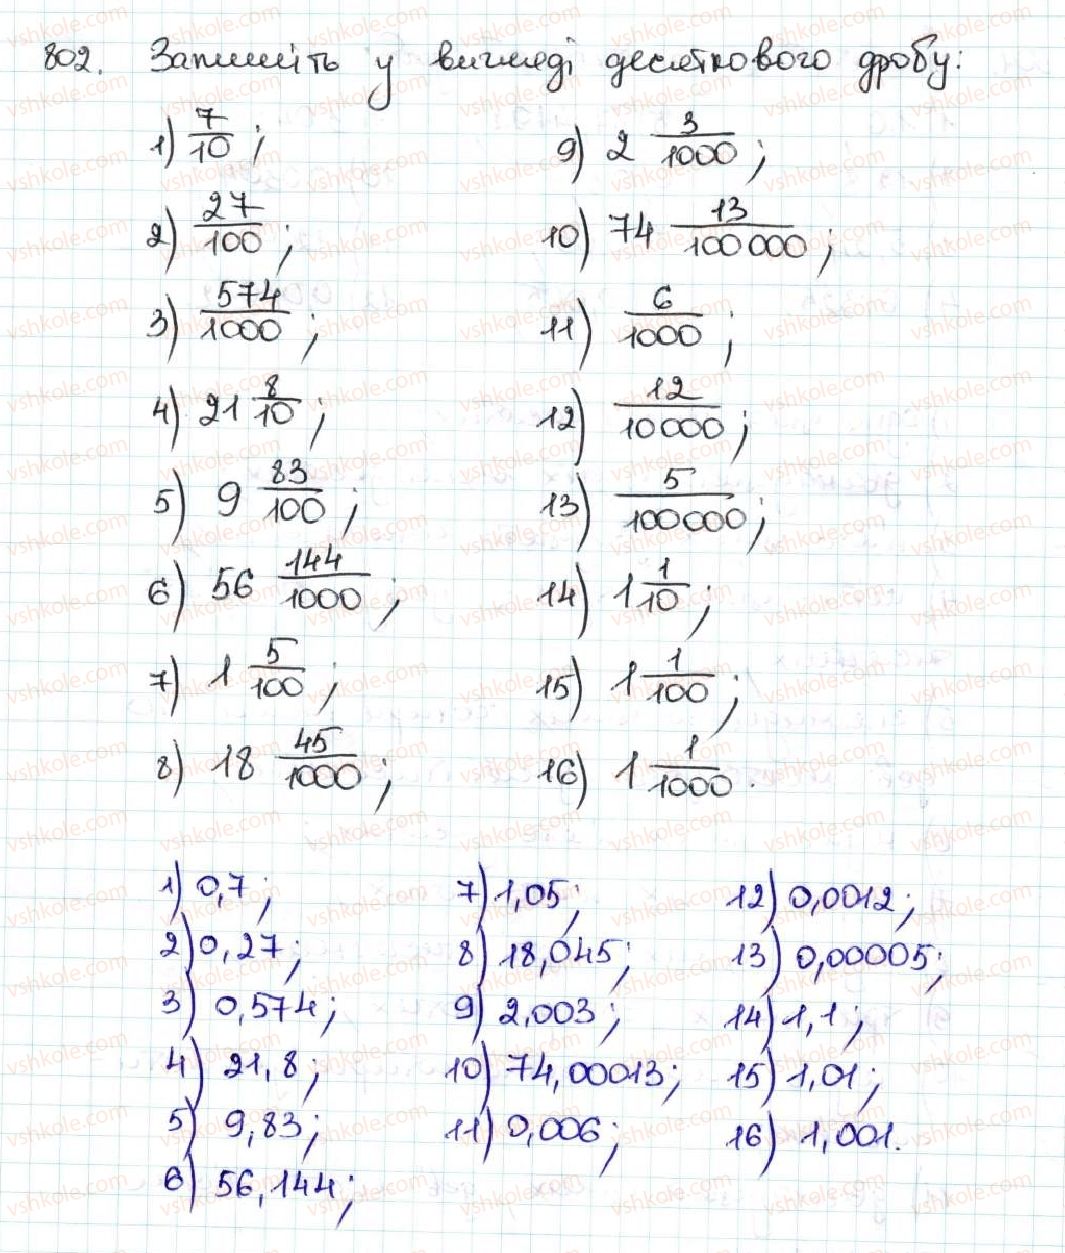 802. Запишіть у вигляді десяткового дробу:
1) 7/10; 9) 2 3/1000;
2) 27/100; 10) 74 13/100 000;
3) 574/1000; 11) 6/1000;
4) 21 8/10; 12) 12/10000;
5) 9 83/100; 13) 5/100000;
6) 56 144/1000; 14) 1 1/10;
7) 1 5/100; 15) 1 1/100;
8) 18 45/1000; 16) 1 1/1000.
1) 0,7; 7) 1,05; 12) 0,0012;
2) 0,27; 8) 18,045; 13) 0,00005;
3) 0,574; 9) 2,003; 14) 1,1;
4) 21,8; 10) 74,00013; 15) 1,01;
5) 9,83; 11) 0,006; 16) 1,001.
6) 56,144;
vshkole.com